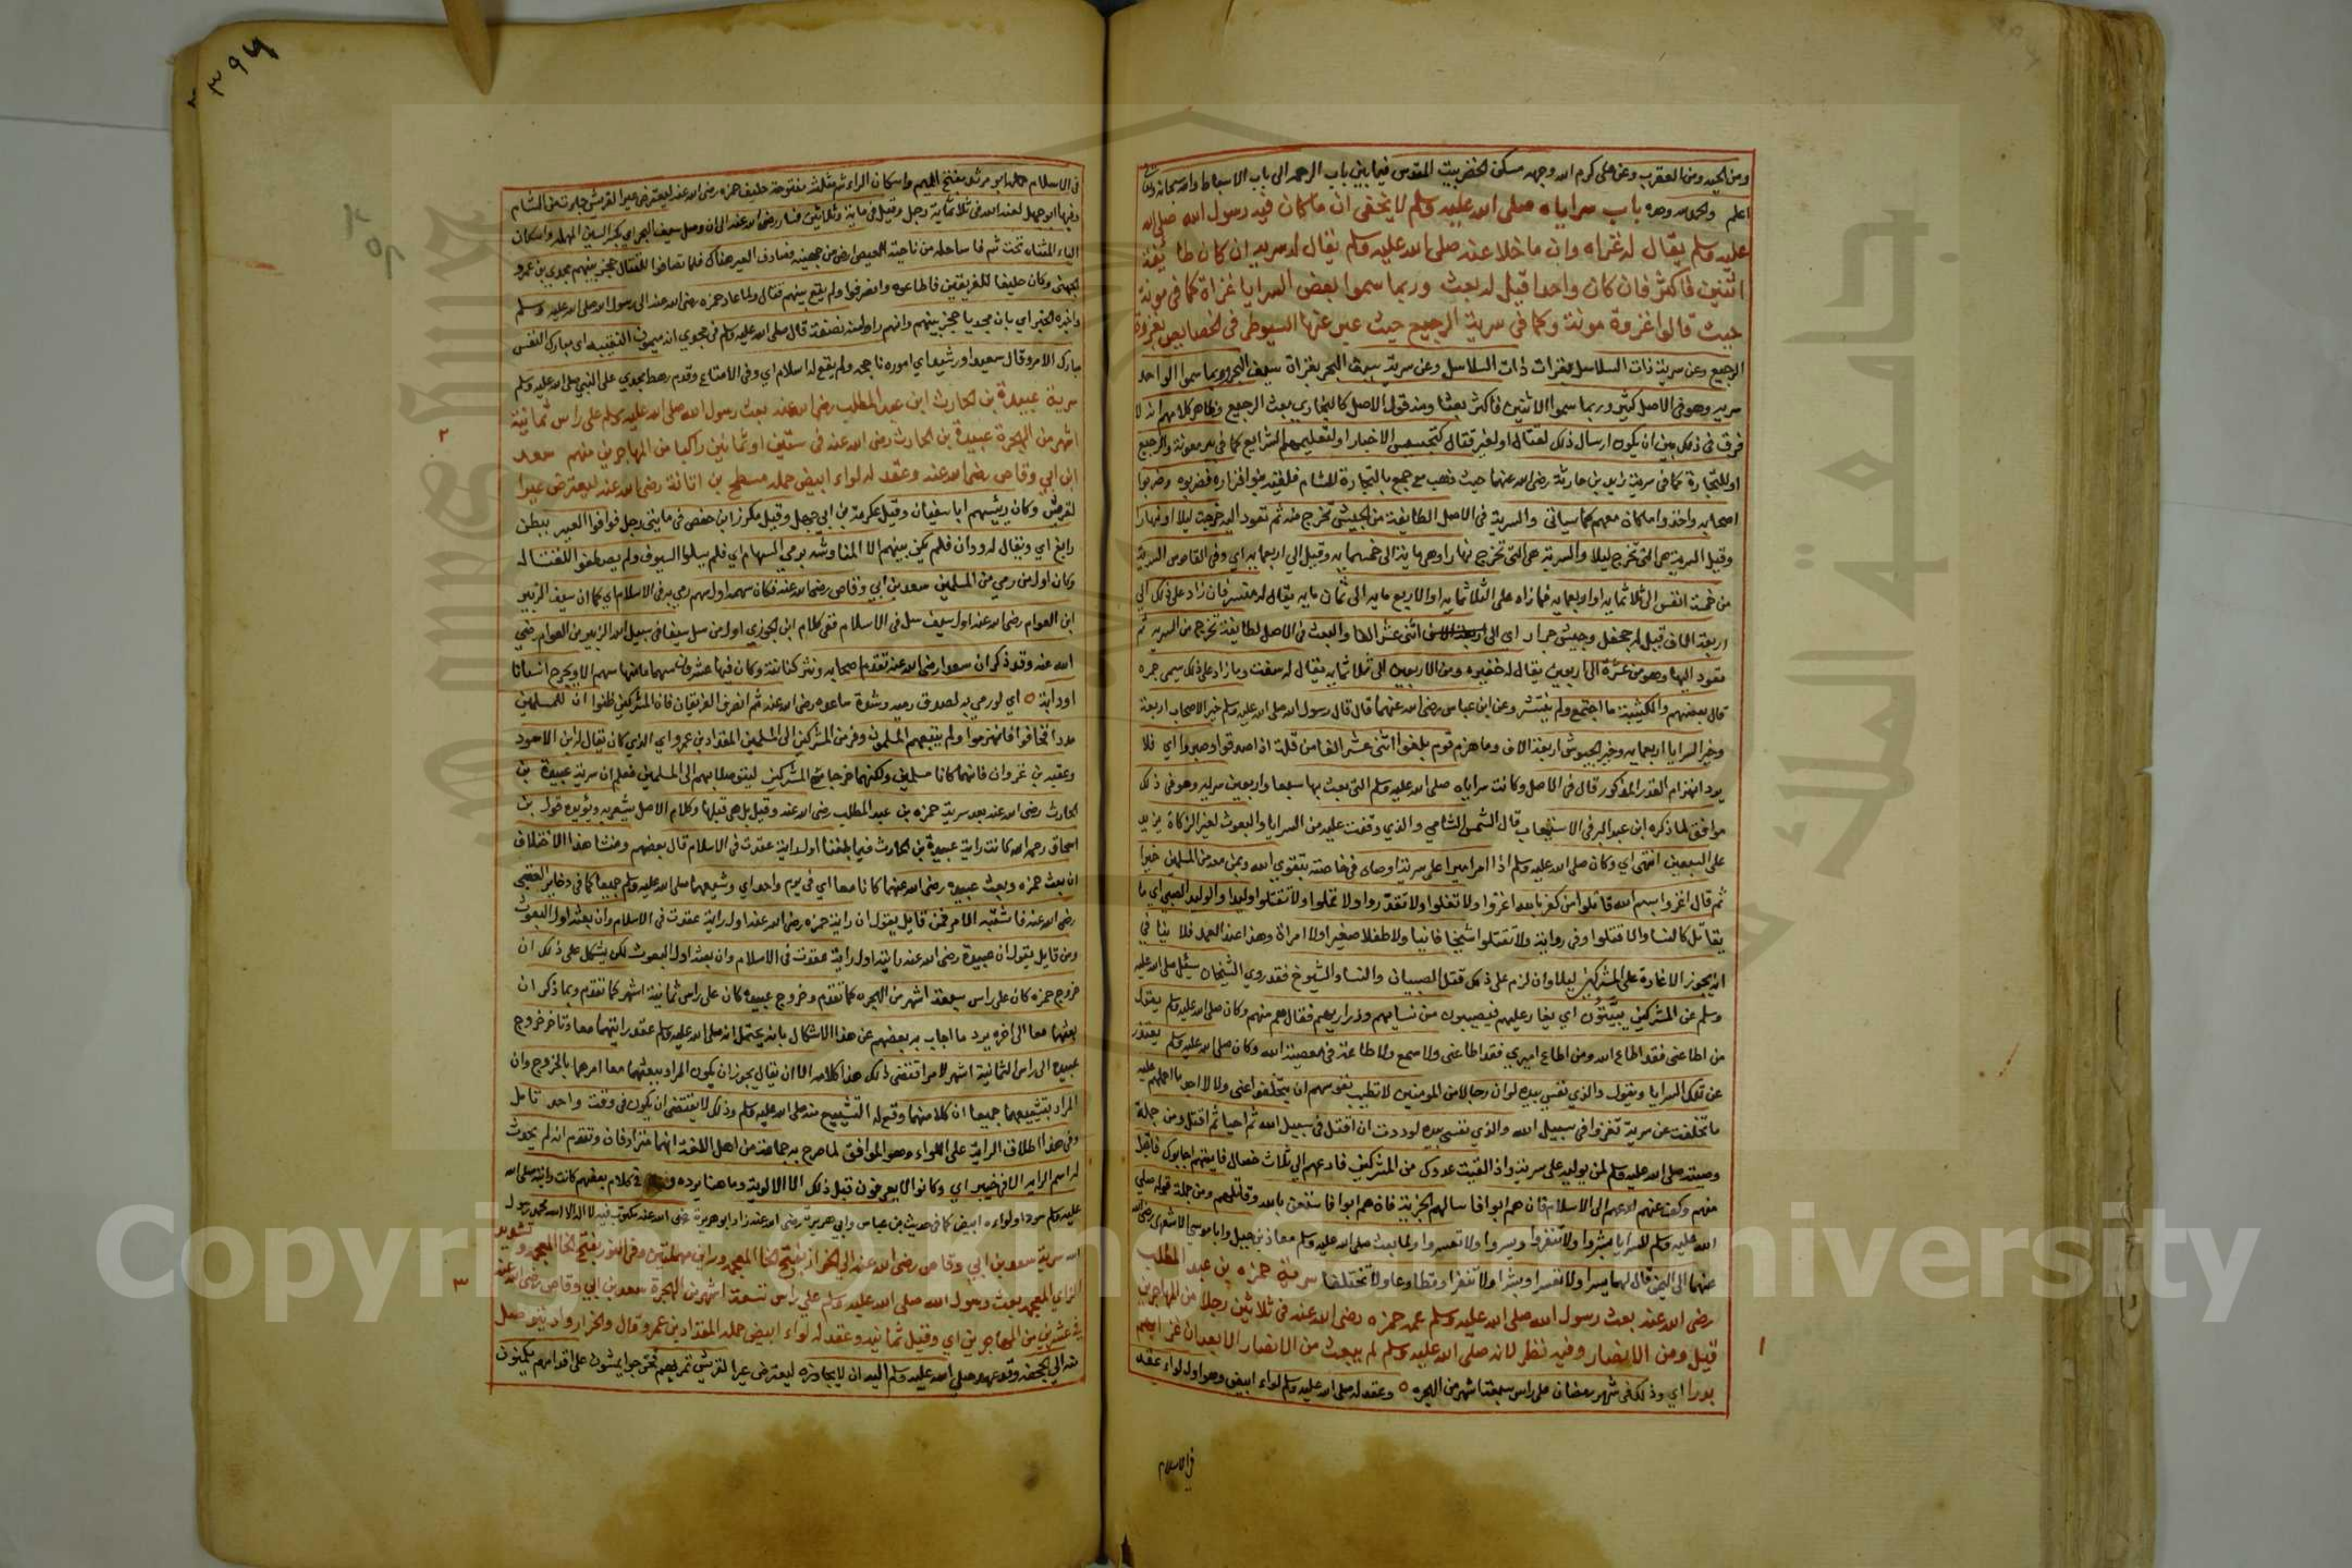 ومن الحيه ومن العقرب وعن على كرم الله وجهه مسكن الخضر بيت المقدس فيما بين باب الرحمه الى باب الاسباط والله سبحانه وتعالى
اعلم والحمد لله وحده باب سراياه صلى الله عليه وسلم لا يخفى ان ما كان فيه رسول الله صلى الله
عليه وسلم يقال له غزاه وان ما خلا عنه صلى الله عليه وسلم يقال له سريه ان كان طايفة
اثنين فاكثر فان كان واحدا قيل له بعث وربما سموا بعض السرايا غزاة كما فى موتة
حيث قالوا غزوة موتة وكما فى سرية الرجيع حيث عبر عنها السيوطى فى الخصايص بغزوة
الرجيع وعن سرية ذات السلاسل بغزات ذات السلاسل وعن سرية سيف البحر بغزاة سيف البحر وربما سموا الواحد
سريه وهو فى الاصل كثير وربما سموا الاثنين فاكثر بعثا ومنه قول الاصل كالبخارى بعث الرجيع وظاهر كلامهم انه لا
فرق فى ذلك بين ان يكون ارسال ذلك لقتال او لغير قتال كتجسيس الاخبار او لتعليمهم الشرايع كما فى بير معونة والرجيع
او للتجارة كما فى سرية زيد بن حارثة رضى الله عنهما حيث ذهب مع جمع بالتجارة للشام فلقيه بنوا فزاره فضربوه وضربوا
اصحابه واخذوا ما كان معهم كما سياتى والسرية فى الاصل الطايفة من الجيش تخرج منه ثم تعود اليه خرجت ليلا او نهارا
وقيل السرية هى التى تخرج ليلا والسربة هى التى تخرج نهارا وهى ماية الى خمسمايه وقيل الى اربعمايه اى وفى القاموس السرية
من خمسة انفس الى ثلاثمايه او اربعمايه فما زاد على الثلاثمايه او الاربع مايه الى ثمان مايه يقال له منسر فان زاد على ذلك الى
اربعة الاف قيل له جحفل وجيش جرار اى الى اثنى عشر الفا والبعث فى الاصل لطايفة تخرج من السريه ثم
تعود اليها وهو من عشرة الى اربعين يقال له خفيره ومن الاربعين الى ثلاثمايه يقال له معقب وما زاد على ذلك سمى جمره
قال بعضهم والكتيبة ما اجتمع ولم ينتشر وعن ابن عباس رضى الله عنهما قال قال رسول الله صلى الله عليه وسلم خير الاصحاب اربعة
وخير السرايا اربعمايه وخير الجيوش اربعة الاف وما هزم قوم بلغوا اثنى عشر الفا من قلة اذا صدقوا وصبروا اى فلا
يرد انهزام القدر المذكور قال فى الاصل وكانت سراياه صلى الله عليه وسلم التى بعث بها سبعا واربعين سريه وهو فى ذلك
موافق لما ذكره ابن عبد البر فى الاستيعاب قال الشمس الشامى والذى وقفت عليه من السرايا والبعوث لغير الزكاة يزيد
على السبعين انتهى اى وكان صلى الله عليه وسلم اذا امر اميرا على سرية اوصاه فى خاصته بتقوى الله وبمن معه من المسلمين خيرا
ثم قال اغزوا بسم الله قاتلوا من كفر بالله اغزوا ولا تغلوا ولا تغدروا ولا تمثلوا ولا تقتلوا وليدا والوليد الصبى اى ما
يقاتل كالنسا والا قتلوا وفى رواية ولا تقتلوا شيخا فانيا ولا طفلا صغيرا ولا امراة وهذا عند العمد فلا ينافى
انه يجوز الاغارة على المشركين ليلا وان لزم على ذلك قتل الصبيان والنسا والشيوخ فقد روى الشيخان سئل صلى الله عليه
وسلم عن المشركين يبيتون اى يغار عليهم فيصيبون من نسايهم وذراريهم فقال هم منهم وكان صلى الله عليه وسلم يقول
من اطاعنى فقد اطاع الله ومن اطاع اميرى فقد اطاعنى ولا سمع ولا طاعة فى معصية الله وكان صلى الله عليه وسلم يعتذر
عن تخلف السرايا ويقول والذى نفسى بيده لولا ان رجالا من المومنين لا تطيب نفوسهم ان يتخلفوا عنى ولا لا اجد ما احملهم عليه
ما تخلفت عن سرية تغزوا فى سبيل الله والذى نفسى بيده لوددت ان اقتل فى سبيل الله ثم احيا ثم اقتل ومن جملة
وصيته صلى الله عليه وسلم لمن يوليه على سرية واذا لقيت عدوك من المشركين فادعهم الى ثلاث خصال فايتهم اجابوك فاقبل
منهم وكف عنهم ادعهم الى الاسلام فان هم ابوا فاسالهم الجزية فان هم ابوا فاستعن بالله وقاتلهم ومن جملة قوله صلى
الله عليه وسلم للسرايا بشروا ولا تنفروا ويسروا ولا تعسروا ولما بعث صلى الله عليه وسلم معاذ بن جبل وابا موسى الاشعرى رضى الله
عنهما الى اليمن قال لهما يسرا ولا تعسرا وبشرا ولا تنفرا وتطاوعا ولا تختلفا سرية حمزه بن عبد المطلب
رضى الله عنه بعث رسول الله صلى الله عليه وسلم عمه حمزه رضى الله عنه فى ثلاثين رجلا من المهاجرين
قيل ومن الانصار وفيه نظر لانه صلى الله عليه وسلم لم يبعث من الانصار الا بعد ان غزا بهم
بدرا اى وذلك فى شهر رمضان على راس سبعة اشهر من الهجره وعقد له صلى الله عليه وسلم لواء ابيض وهو اول لواء عقد
فى الاسلام
١
٣٩٤
فى الاسلام حمله ابو مرثد بفتح الميم واسكان الراء ثم مثلثة مفتوحة حليف حمزه رضى الله عنه ليعترض عيرا لقريش جات من الشام
وفيها ابو جهل لعنه الله فى ثلاثماية رجل وقيل فى ماية وثلاثين فسار رضى الله عنه الى ان وصل سيف البحر اى بكسر السين المهمله واسكان
الياء المثناه تحت ثم فا ساحله من ناحية العيص ارض من جهينه فصادف العير هناك فلما تصافوا للقتال حجز بينهم مجدى بن عمرو
الجهنى وكان حليفا للفريقين فاطاعوه وانصرفوا ولم يقع بينهم قتال ولما عاد حمزه رضى الله عنه الى رسول الله صلى الله عليه وسلم
واخبره الخبر اى بان مجديا حجز بينهم وانهم راوا منه نصفة قال صلى الله عليه وسلم فى مجدى انه ميمون النقيبه اى مبارك النفس
مبارك الامر وقال سعيدا ورشيدا اى اموره ناجحه ولم يقع له اسلام اى وفى الامتاع وقدم رهط مجدى على النبى صلى الله عليه وسلم
سرية عبيدة بن الحارث ابن عبد المطلب رضى الله عنه بعث رسول الله صلى الله عليه وسلم على راس ثمانية
اشهر من الهجرة عبيدة بن الحارث رضى الله عنه فى ستين او ثمانين راكبا من المهاجرين منهم سعد
ابن ابى وقاص رضى الله عنه وعقد له لواء ابيض حمله مسطح بن اثاثة رضى الله عنه ليعترض عيرا
لقريش وكان رئيسهم ابا سفيان وقيل عكرمة بن ابى جهل وقيل مكرز ابن حفص فى مايتى رجل فوافوا العير ببطن
رابغ اى ويقال له ودان فلم يكن بينهم الا المناوشه برمى السهام اى فلم يسلوا السيوف ولم يصطفوا للقتال
وكان اول من رمى من المسلمين سعد بن ابى وقاص رضى الله عنه فكان سهمه اول سهم رمى به فى الاسلام اى كما ان سيف الزبير
ابن العوام رضى الله عنه اول سيف سل فى الاسلام ففى كلام ابن الجوزى اول من سل سيفا فى سبيل الله الزبير بن العوام رضى
الله عنه وقد ذكر ان سعدا رضى الله عنه تقدم اصحابه ونثر كنانته وكان فيها عشرون سهما ما منها سهم الا ويجرح انسانا
او دابة اى لو رمى به لصدق رميه وشدة ساعده رضى الله عنه ثم انصرف الفريقان فان المشركين ظنوا ان للمسلمين
مددا فخافوا فانهزموا ولم يتبعهم المسلمون وفر من المشركين الى المسلمين المقداد بن عمرو اى الذى كان يقال له ابن الاسود
وعتبه بن غزوان فانهما كانا مسلمين ولكنهما خرجا مع المشركين ليتوصلا بهم الى المسلمين فعلم ان سرية عبيدة بن
الحارث رضى الله عنه بعد سرية حمزه بن عبد المطلب رضى الله عنه وقيل بل هى قبلها وكلام الاصل يشعر به ويؤيده قول بن
اسحاق رحمه الله كانت راية عبيدة بن الحارث فيما بلغنا اول راية عقدت فى الاسلام قال بعضهم ومنشا هذا الاختلاف
ان بعث حمزه وبعث عبيده رضى الله عنهما كانا معا اى فى يوم واحد اى وشيعهما صلى الله عليه وسلم جميعا كما فى ذخاير العقبى
رضى الله عنه فاشتبه الامر فمن قايل يقول ان راية حمزه رضى الله عنه اول راية عقدت فى الاسلام وان بعثه اول البعوث
ومن قايل يقول ان عبيدة رضى الله عنه رايته اول راية عقدت فى الاسلام وان بعثه اول البعوث لكن يشكل على ذلك ان
خروج حمزه كان على راس سبعة اشهر من الهجره كما تقدم وخروج عبيده كان على راس ثمانية اشهر كما تقدم وبما ذكر ان
بعثهما معا الى اخره يرد ما اجاب به بعضهم عن هذا الاشكال بانه يحتمل انه صلى الله عليه وسلم عقد رايتهما معا وتاخر خروج
عبيده الى راس الثمانية اشهر لامر اقتضى ذلك هذا كلامه الا ان يقال يجوز ان يكون المراد ببعثهما معا امرهما بالخروج وان
المراد بتشييعهما جميعا ان كلا منهما وقع له التشييع منه صلى الله عليه وسلم وذلك لا يقتضى ان يكون فى وقت واحد تامل
وفى هذا اطلاق الراية على اللواء وهو الموافق لما صرح به جماعة من اهل اللغة انهما مترادفان وتقدم انه لم يحدث
له اسم الرايه الا فى خيبر اى وكانوا لا يعرفون قبل ذلك الا الالوية وما هنا يرده وفى كلام بعضهم كانت رايته صلى الله
عليه وسلم سودا ولواءه ابيض كما فى حديث بن عباس وابى هريرة رضى الله عنه زاد ابو هريرة رضى الله عنه مكتوب فيه لا اله الا الله محمد رسول
الله سرية سعد بن ابى وقاص رضى الله عنه الى الخرار بفتح الخا المعجمه وراين مهملتين وفى النور بفتح الخا المعجمه وتشديد
الزاى المعجمه بعث رسول الله صلى الله عليه وسلم على راس تسعة اشهر من الهجرة سعد بن ابى وقاص رضى الله عنه
فى عشرين من المهاجرين اى وقيل ثمانيه وعقد له لواء ابيض حمله المقداد بن عمرو قال والخرار واد يتوصل
منه الى الجحفه وقد عهد صلى الله عليه وسلم اليه ان لا يجاوزه ليعترض عيرا لقريش تمر بهم فخرجوا يمشون على اقدامهم يكمنون
٢
٣
Copyright © King Saud University